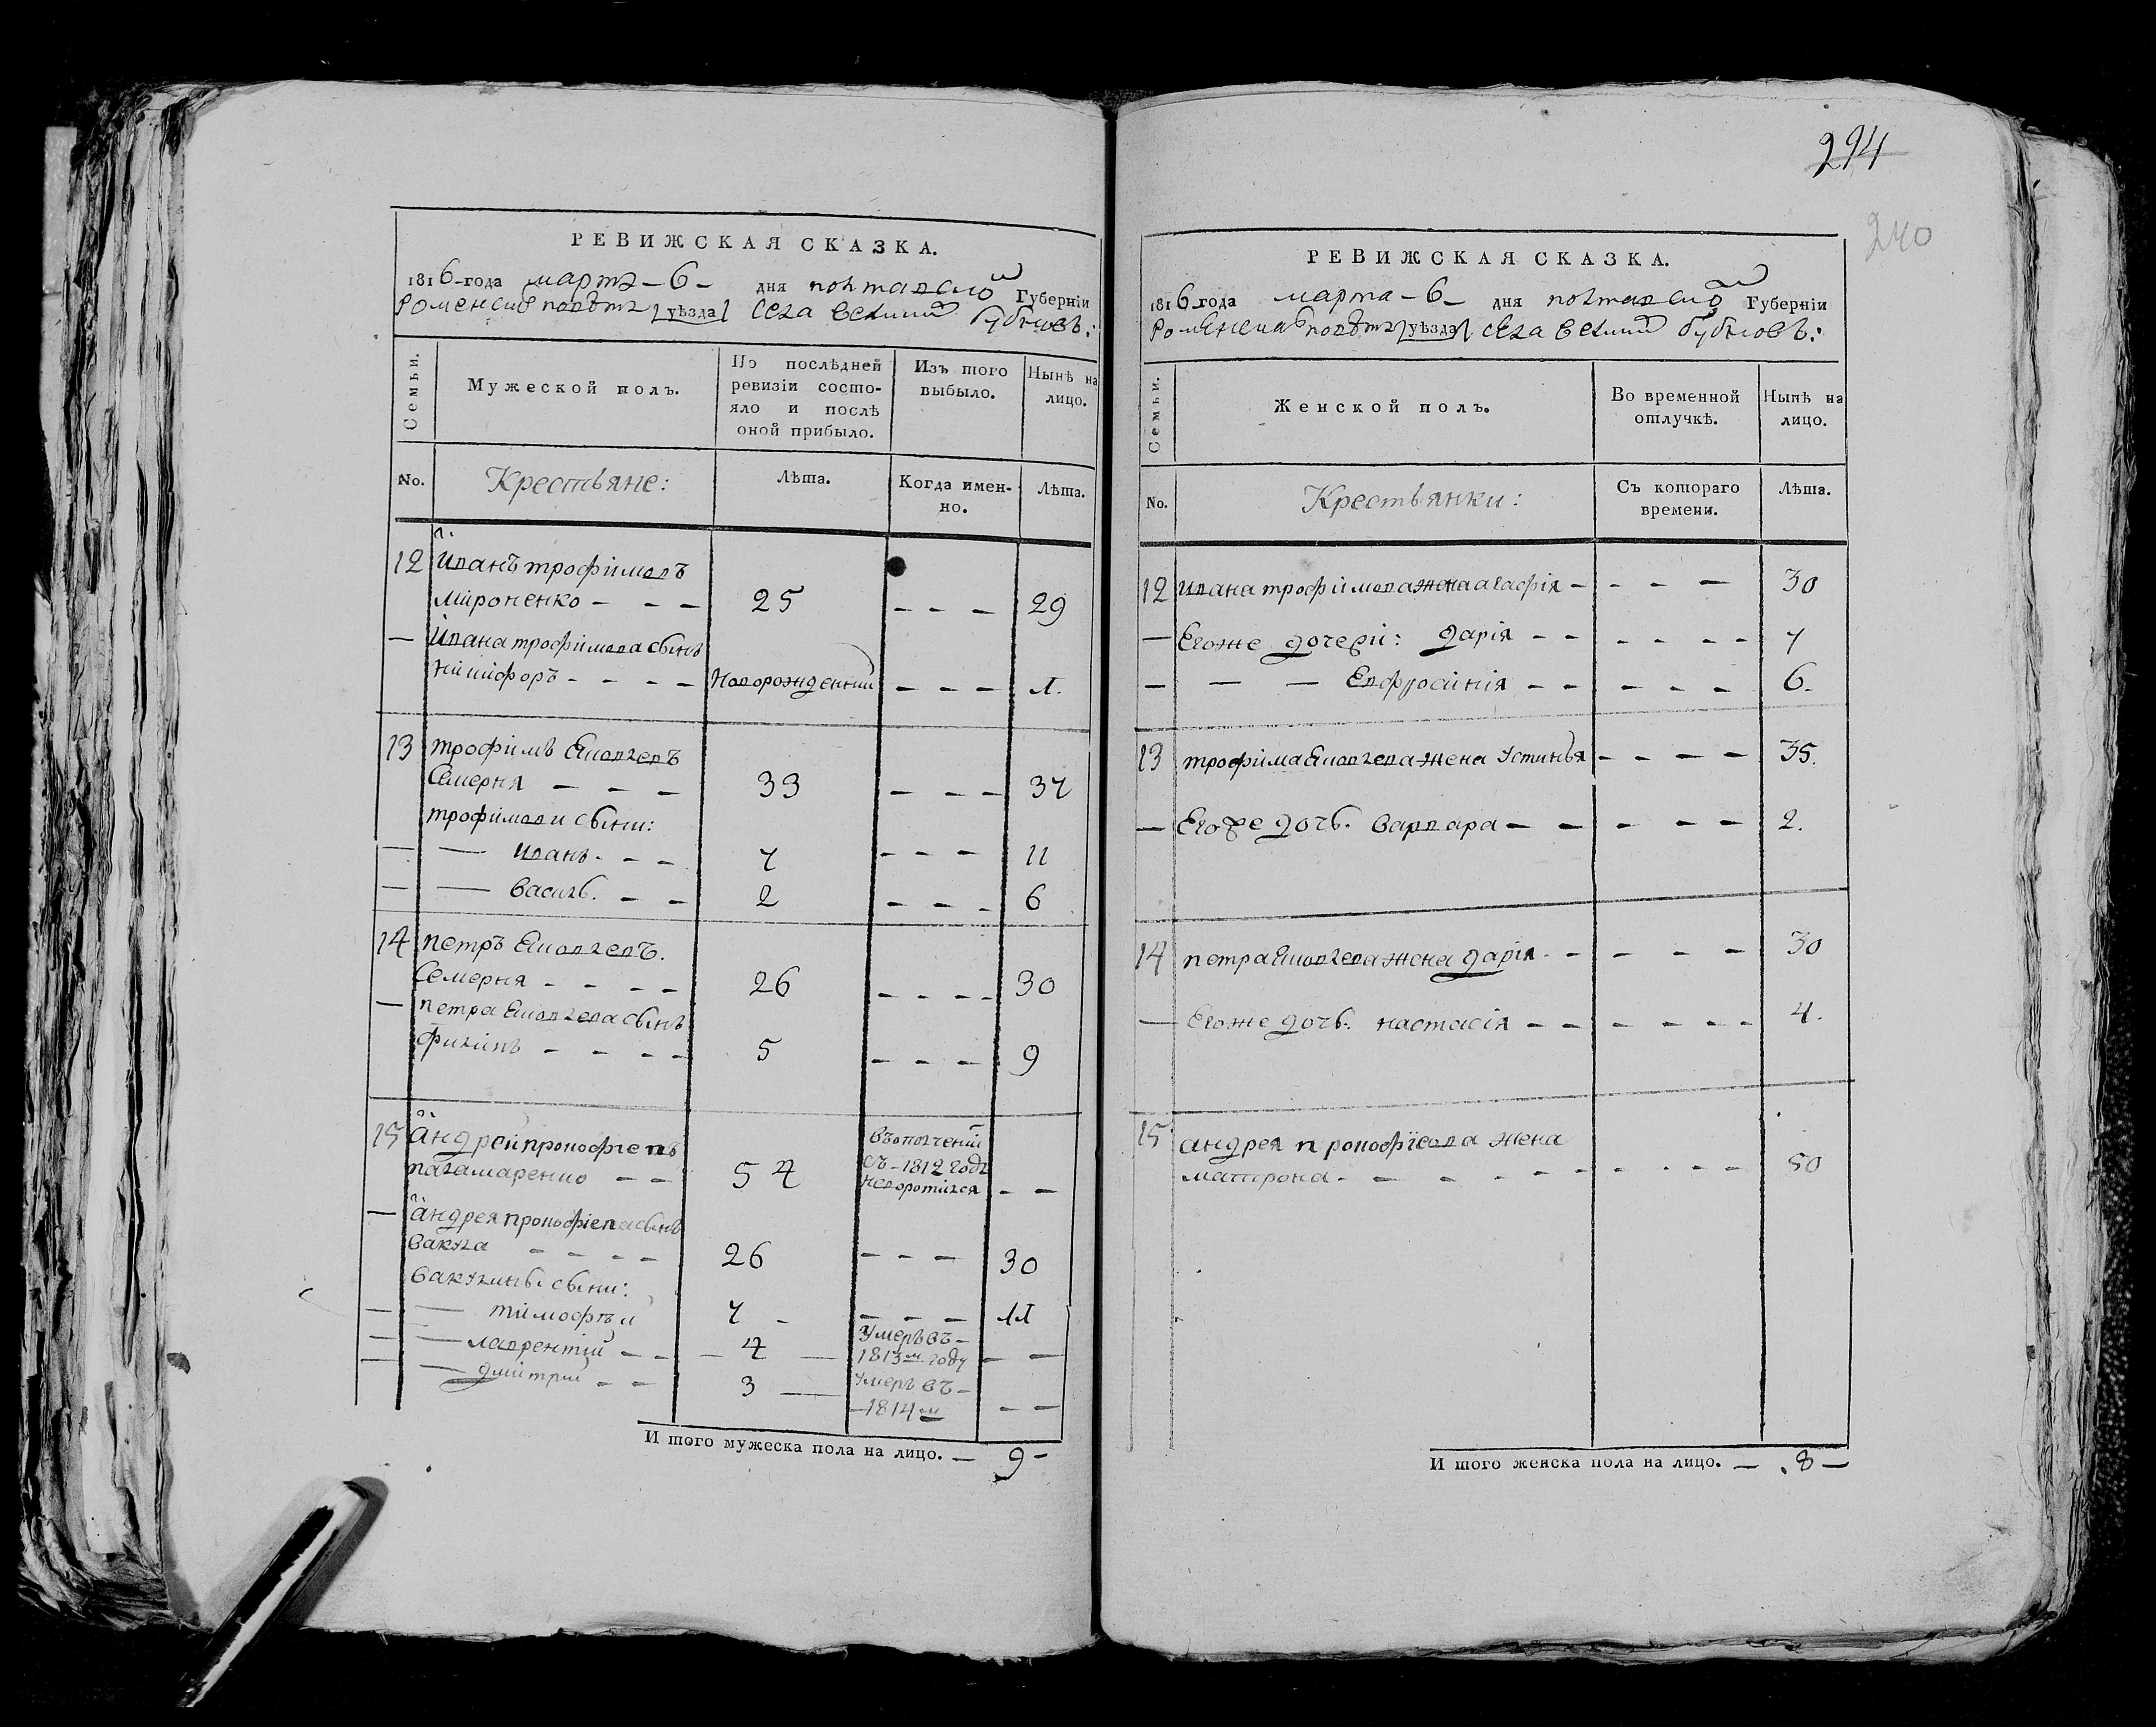 РЕВИЖСКАЯ СКАЗКА.
1816-года марта-6- дня полтавской Губерніи
Роменскаго повѣта [уѣзда] села великихъ бубновъ:
Семьи.
Мужеской полъ.
По послѣдней ревизіи состо-
яло и послѣ
оной прибыло.
Изъ того
выбыло.
Нынѣ на
лицо.
No.
Крестьяне:
Лѣта.
Когда имен-
но.
Лѣта.
12 Иванъ трофимовъ
мироненко - - - 25 - - - 29
— Ивана трофимова сынъ
никифоръ - - - - новорожденный - - - 1.
13 трофимъ Яковлевъ
Семерня - - - 33 - - - 37
трофимови сыни:
— — иванъ - - - 7 - - - 11
— — василь. - - 2 - - - 6
14 петръ Яковлевъ.
Семерня - - - - 26 - - - - 30
— петра Яковлева сынъ
филипъ - - - - 5 - - - 9
15 андрей прокофіевъ
паламаренко - - 54 въополченіи
съ-1812 года
неворотился - -
— андрея прокофіева сынъ
вакула - - - - 26 - - - 30
вакулинь. сыни:
— — тимофѣй 7 - - - - 11
— — лаврентій - - - 4 — умеръ въ-
1813м году — —
— — дмитрій - - 3 — умеръ въ-
-1814м — —
И того мужеска пола на лицо. — 9-
294
240
РЕВИЖСКАЯ СКАЗКА.
1816-года марта-6- дня полтавской Губерніи
Роменскаго повѣта [уѣзда] села великихъ бубновъ:
Семьи.
Женской полъ.
Во временной
отлучкѣ.
Нынѣ на
лицо.
No.
Крестьянки:
Съ котораго
времени.
Лѣта.
12 ивана трофимова жена агафія - - - - 30
— Егоже дочери: дарія - - - - - - 7
— — — Евфросинія - - - - - - 6.
13 трофима Яковлева жена устинья - - - - 35.
— Егоже дочь: варвара - - - - - 2.
14 петра Яковлева жена дарія - - - - - 30
— Егоже дочь: настасія - - - - - - 4.
15 андрея прокофіева жена
матрона - - - - - - - - - 50
И того женска пола на лицо. — .8-